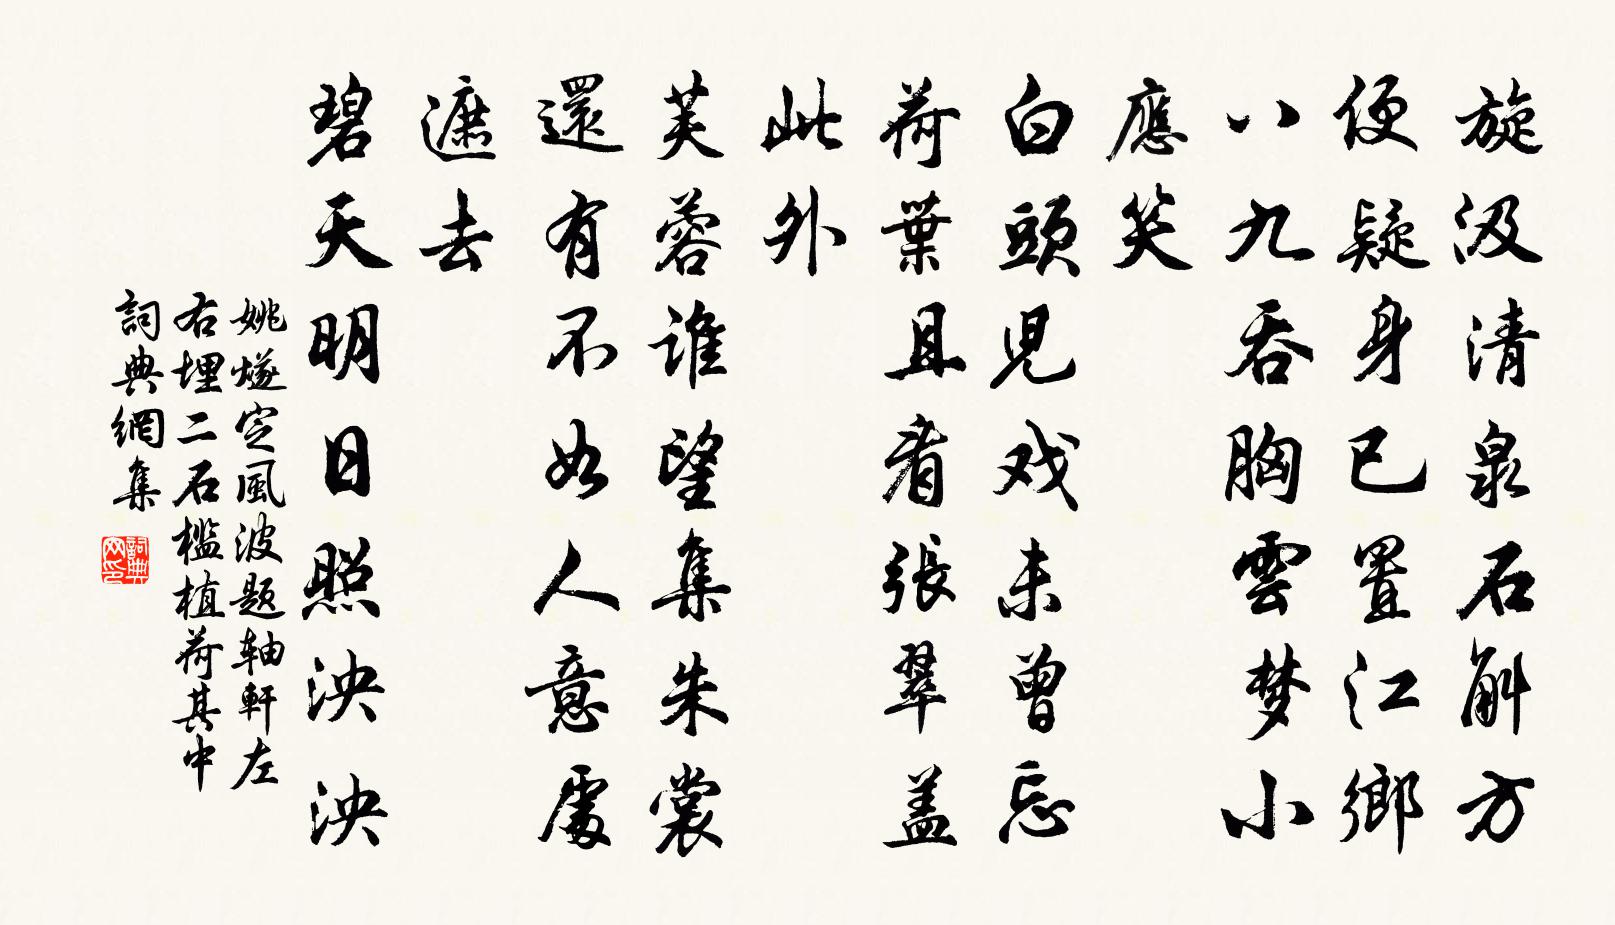 旋汲清泉石斛方
便疑身已置江鄉
八九吞胸雲梦小
應笑
白頭児戏未曽忘
荷葉且看張翠盖
此外
芙蓉谁望集朱裳
還有不如人意處
遮去
碧天明日照泱泱
姚燧定風波题轴軒左
右埋二石槛植荷其中
詞典網集
詞典网印